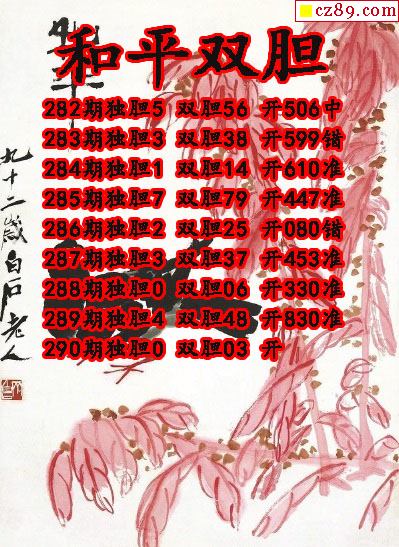 cz89.com
和平双胆
282期独胆5 双胆56 开506中
283期独胆3 双胆38 开599错
284期独胆1 双胆14 开610准
285期独胆7 双胆79 开447准
286期独胆2 双胆25 开080错
287期独胆3 双胆37 开453准
288期独胆0 双胆06 开330准
289期独胆4 双胆48 开830准
290期独胆0 双胆03 开
九十二歲白石老人